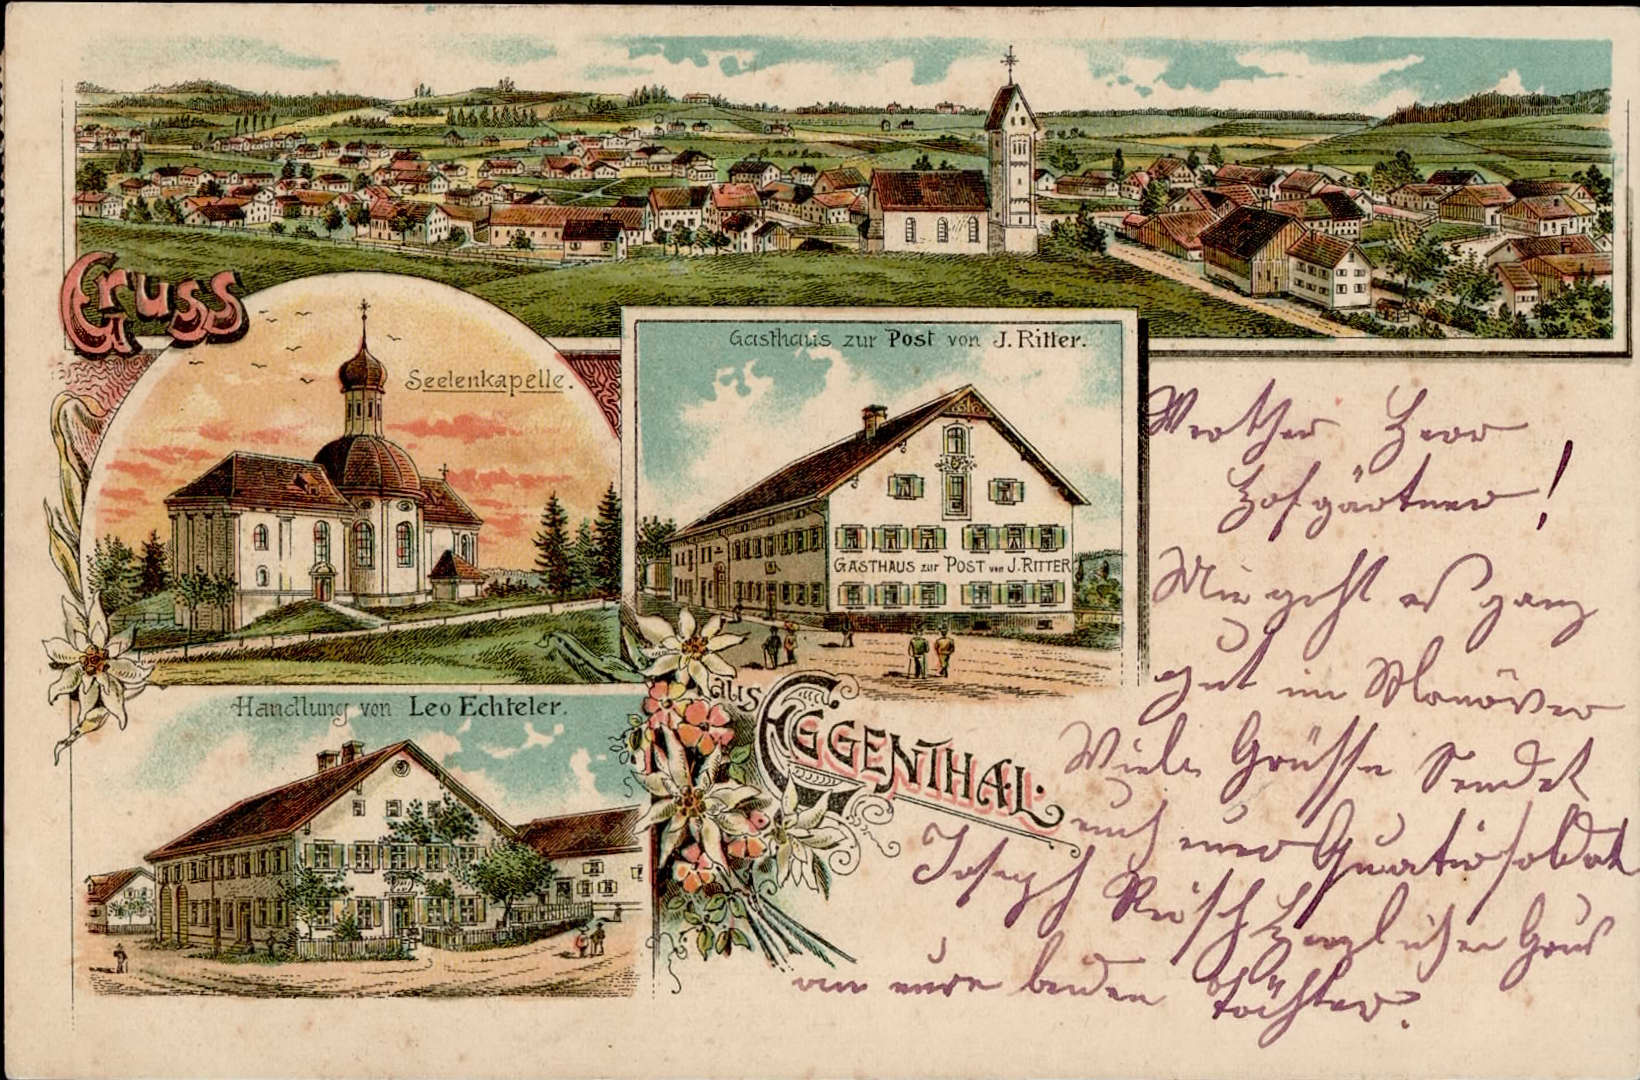 Gruss
Seelenkapelle.
Gasthaus zur Post von J. Ritter.
GASTHAUS zur POST von J. RITTER
Handlung von Leo Echteler.
aus
EGGENTHAL.
Werther Herr
Hofgärtner!
Mir geht es ganz
gut im Manöver
Viele Grüsse Sendet
euch euer Quatirsoldat
Joseph Herzlichen Grus
an eure beiden Töchter.